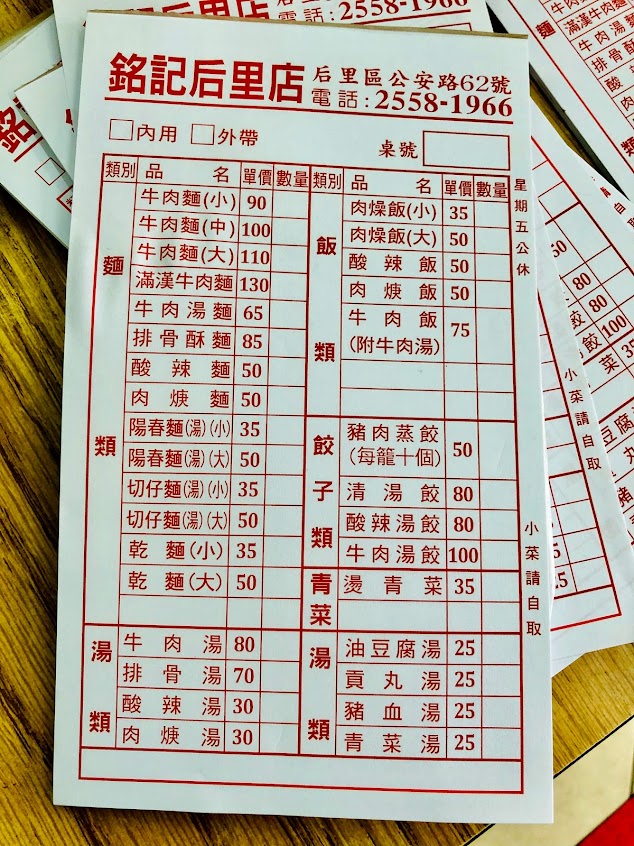 銘記后里店
后里區公安路62號
電話:2558-1966
內用 外帶
桌號
類別 品名 單價 數量
麵類
牛肉麵(小) 90
牛肉麵(中) 100
牛肉麵(大) 110
滿漢牛肉麵 130
牛肉湯麵 65
排骨酥麵 85
酸辣麵 50
肉焿麵 50
陽春麵(湯)(小) 35
陽春麵(湯)(大) 50
切仔麵(湯)(小) 35
切仔麵(湯)(大) 50
乾麵(小) 35
乾麵(大) 50
湯類
牛肉湯 80
排骨湯 70
酸辣湯 30
肉焿湯 30
類別 品名 單價 數量
飯類
肉燥飯(小) 35
肉燥飯(大) 50
酸辣飯 50
肉焿飯 50
牛肉飯 75
(附牛肉湯)
餃子類
豬肉蒸餃 50
(每籠十個)
清湯餃 80
酸辣湯餃 80
牛肉湯餃 100
青菜
燙青菜 35
湯類
油豆腐湯 25
貢丸湯 25
豬血湯 25
青菜湯 25
星期五公休
小菜請自取
后里店
電話:2558-1966
小菜請自取